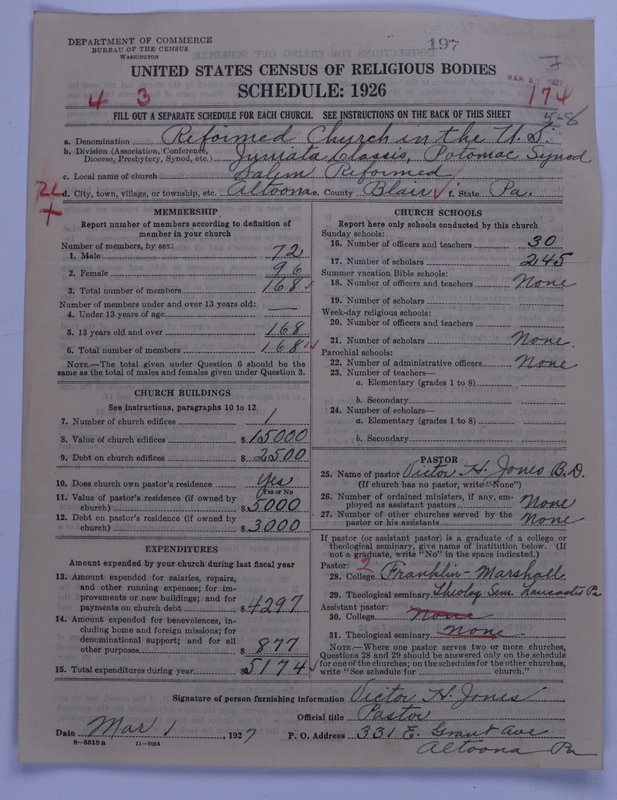 DEPARTMENT OF COMMERCE
BUREAU OF THE CENSUS
WASHINGTON
197
UNITED STATES CENSUS OF RELIGIOUS BODIES
SCHEDULE: 1926
4 3
174
FILL OUT A SEPARATE SCHEDULE FOR EACH CHURCH. SEE INSTRUCTIONS ON THE BACK OF THIS SHEET
5-8
a. Denomination Reformed Church in the U.S.
b. Division (Association, Conference, Diocese, Presbytery, Synod, etc.) Juniata Classis, Potomac Synod
c. Local name of church Salem Reformed
d. City, town, village, or township, etc. Altoona e. County Blair f. State Pa.
MEMBERSHIP
Report number of members according to definition of
member in your church
Number of members, by sex:
1. Male 72
2. Female 96
3. Total number of members 168
Number of members under and over 13 years old:
4. Under 13 years of age —
5. 13 years old and over 168
6. Total number of members 168
NOTE.—The total given under Question 6 should be the
same as the total of males and females given under Question 3.
CHURCH BUILDINGS
See instructions, paragraphs 10 to 12
7. Number of church edifices 1
8. Value of church edifices $15000
9. Debt on church edifices $2500
10. Does church own pastor's residence Yes
(Yes or No)
11. Value of pastor's residence (if owned by
church) $5000
12. Debt on pastor's residence (if owned by
church) $3000
EXPENDITURES
Amount expended by your church during last fiscal year
13. Amount expended for salaries, repairs,
and other running expenses; for im-
provements or new buildings; and for
payments on church debt $4297
14. Amount expended for benevolences, in-
cluding home and foreign missions; for
denominational support; and for all
other purposes $877
15. Total expenditures during year $5174
CHURCH SCHOOLS
Report here only schools conducted by this church
Sunday schools:
16. Number of officers and teachers 30
17. Number of scholars 245
Summer vacation Bible schools:
18. Number of officers and teachers None
19. Number of scholars
Week-day religious schools:
20. Number of officers and teachers
21. Number of scholars None.
Parochial schools:
22. Number of administrative officers None
23. Number of teachers—
a. Elementary (grades 1 to 8)
b. Secondary
24. Number of scholars—
a. Elementary (grades 1 to 8)
b. Secondary
PASTOR
25. Name of pastor Victor H. Jones B.D.
(If church has no pastor, write "None")
26. Number of ordained ministers, if any, em-
ployed as assistant pastors None
27. Number of other churches served by the
pastor or his assistants None
If pastor (or assistant pastor) is a graduate of a college or
theological seminary, give name of institution below. (If
not a graduate, write "No" in the space indicated.)
Pastor: 2
28. College Franklin-Marshall
29. Theological seminary Theolog. Sem. Lancaster Pa
Assistant pastor:
30. College None
31. Theological seminary None
NOTE.—Where one pastor serves two or more churches,
Questions 28 and 29 should be answered only on the schedule
for one of the churches; on the schedules for the other churches,
write "See schedule for church."
Signature of person furnishing information Victor H. Jones
Official title Pastor
Date Mar 1, 1927 P. O. Address 331 E. Grant Ave
Altoona Pa
8—5518a 11—9164